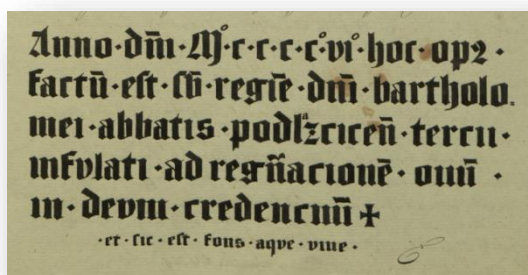 Anno·dm̄i·M̊·c·c·c·c̊·vi̊·hoc·opꝛ·
factū·est·sb̄·regīe·dm̄i·bartholo.
mei·abbatis·podlzcicen̄·tercii·
infvlati·ad regn̄acionē·om̄i·
in·devm·credencnū̄ +
·et·sic·est·fons·aqve·vive·